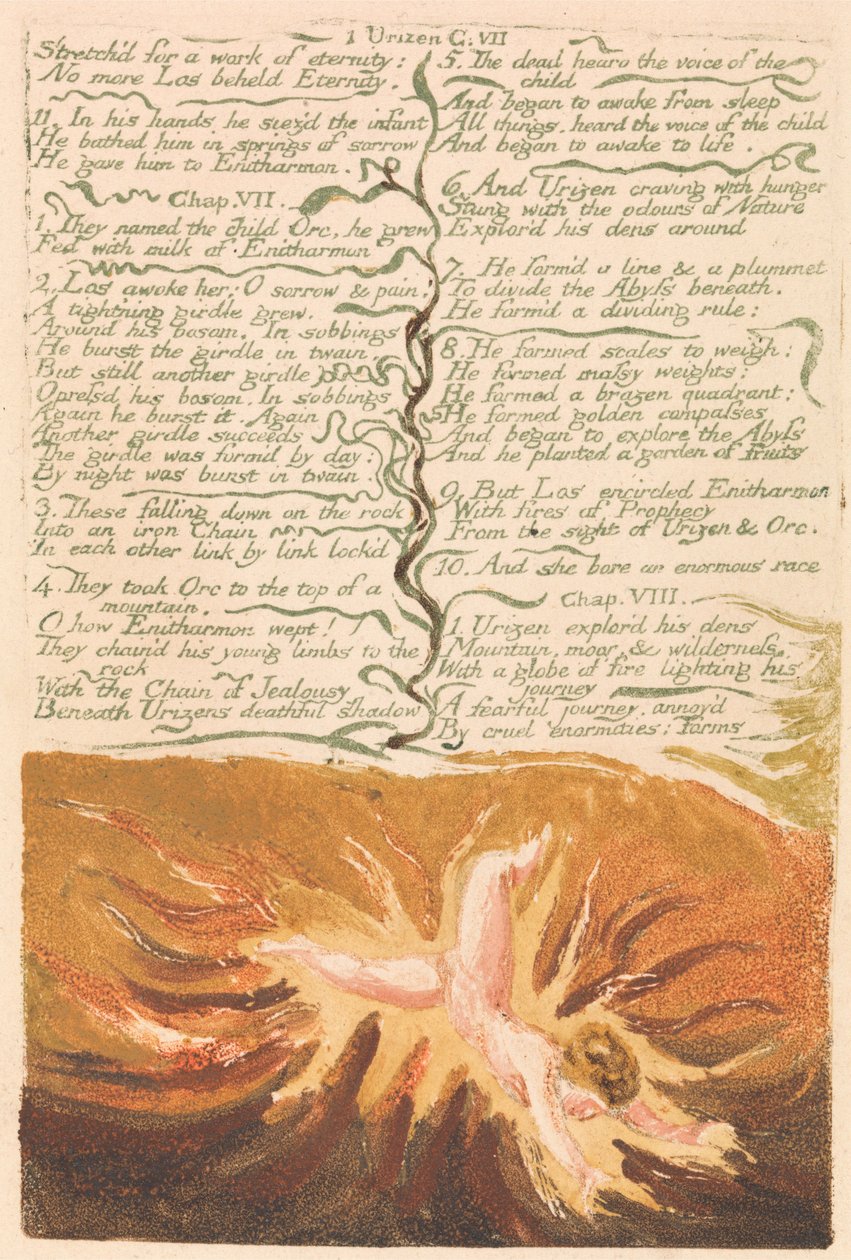 1 Urizen C: VII
Stretch'd for a work of eternity:
No more Los beheld Eternity.
11. In his hands he siez'd the infant
He bathed him in springs of sorrow
He gave him to Enitharmon.
Chap. VII.
1. They named the child Orc, he grew
Fed with milk of Enitharmon
2. Los awoke her; O sorrow & pain.
A tightning girdle grew,
Around his bosom. In sobbings
He burst the girdle in twain,
But still another girdle
Opressd his bosom, In sobbings
Again he burst it. Again
Another girdle succeeds
The girdle was form'd by day;
By night was burst in twain.
3. These falling down on the rock
Into an iron Chain
In each other link by link lock'd
4. They took Orc to the top of a
mountain.
O how Enitharmon wept!
They chain'd his young limbs to the
rock
With the Chain of Jealousy
Beneath Urizens deathful shadow
5. The dead heard the voice of the
child
And began to awake from sleep
All things. heard the voice of the child
And began to awake to life.
6. And Urizen craving with hunger
Stung with the odours of Nature
Explor'd his dens around
7. He form'd a line & a plummet
To divide the Abyss beneath.
He form'd a dividing rule:
8. He formed scales to weigh;
He formed massy weights;
He formed a brazen quadrant;
He formed golden compasses
And began to explore the Abyss
And he planted a garden of fruits
9. But Los encircled Enitharmon
With fires of Prophecy
From the sight of Urizen & Orc.
10. And she bore an enormous race
Chap. VIII.
1. Urizen explor'd his dens
Mountain, moor, & wilderness,
With a globe of fire lighting his
journey
A fearful journey, annoy'd
By cruel enormities: forms